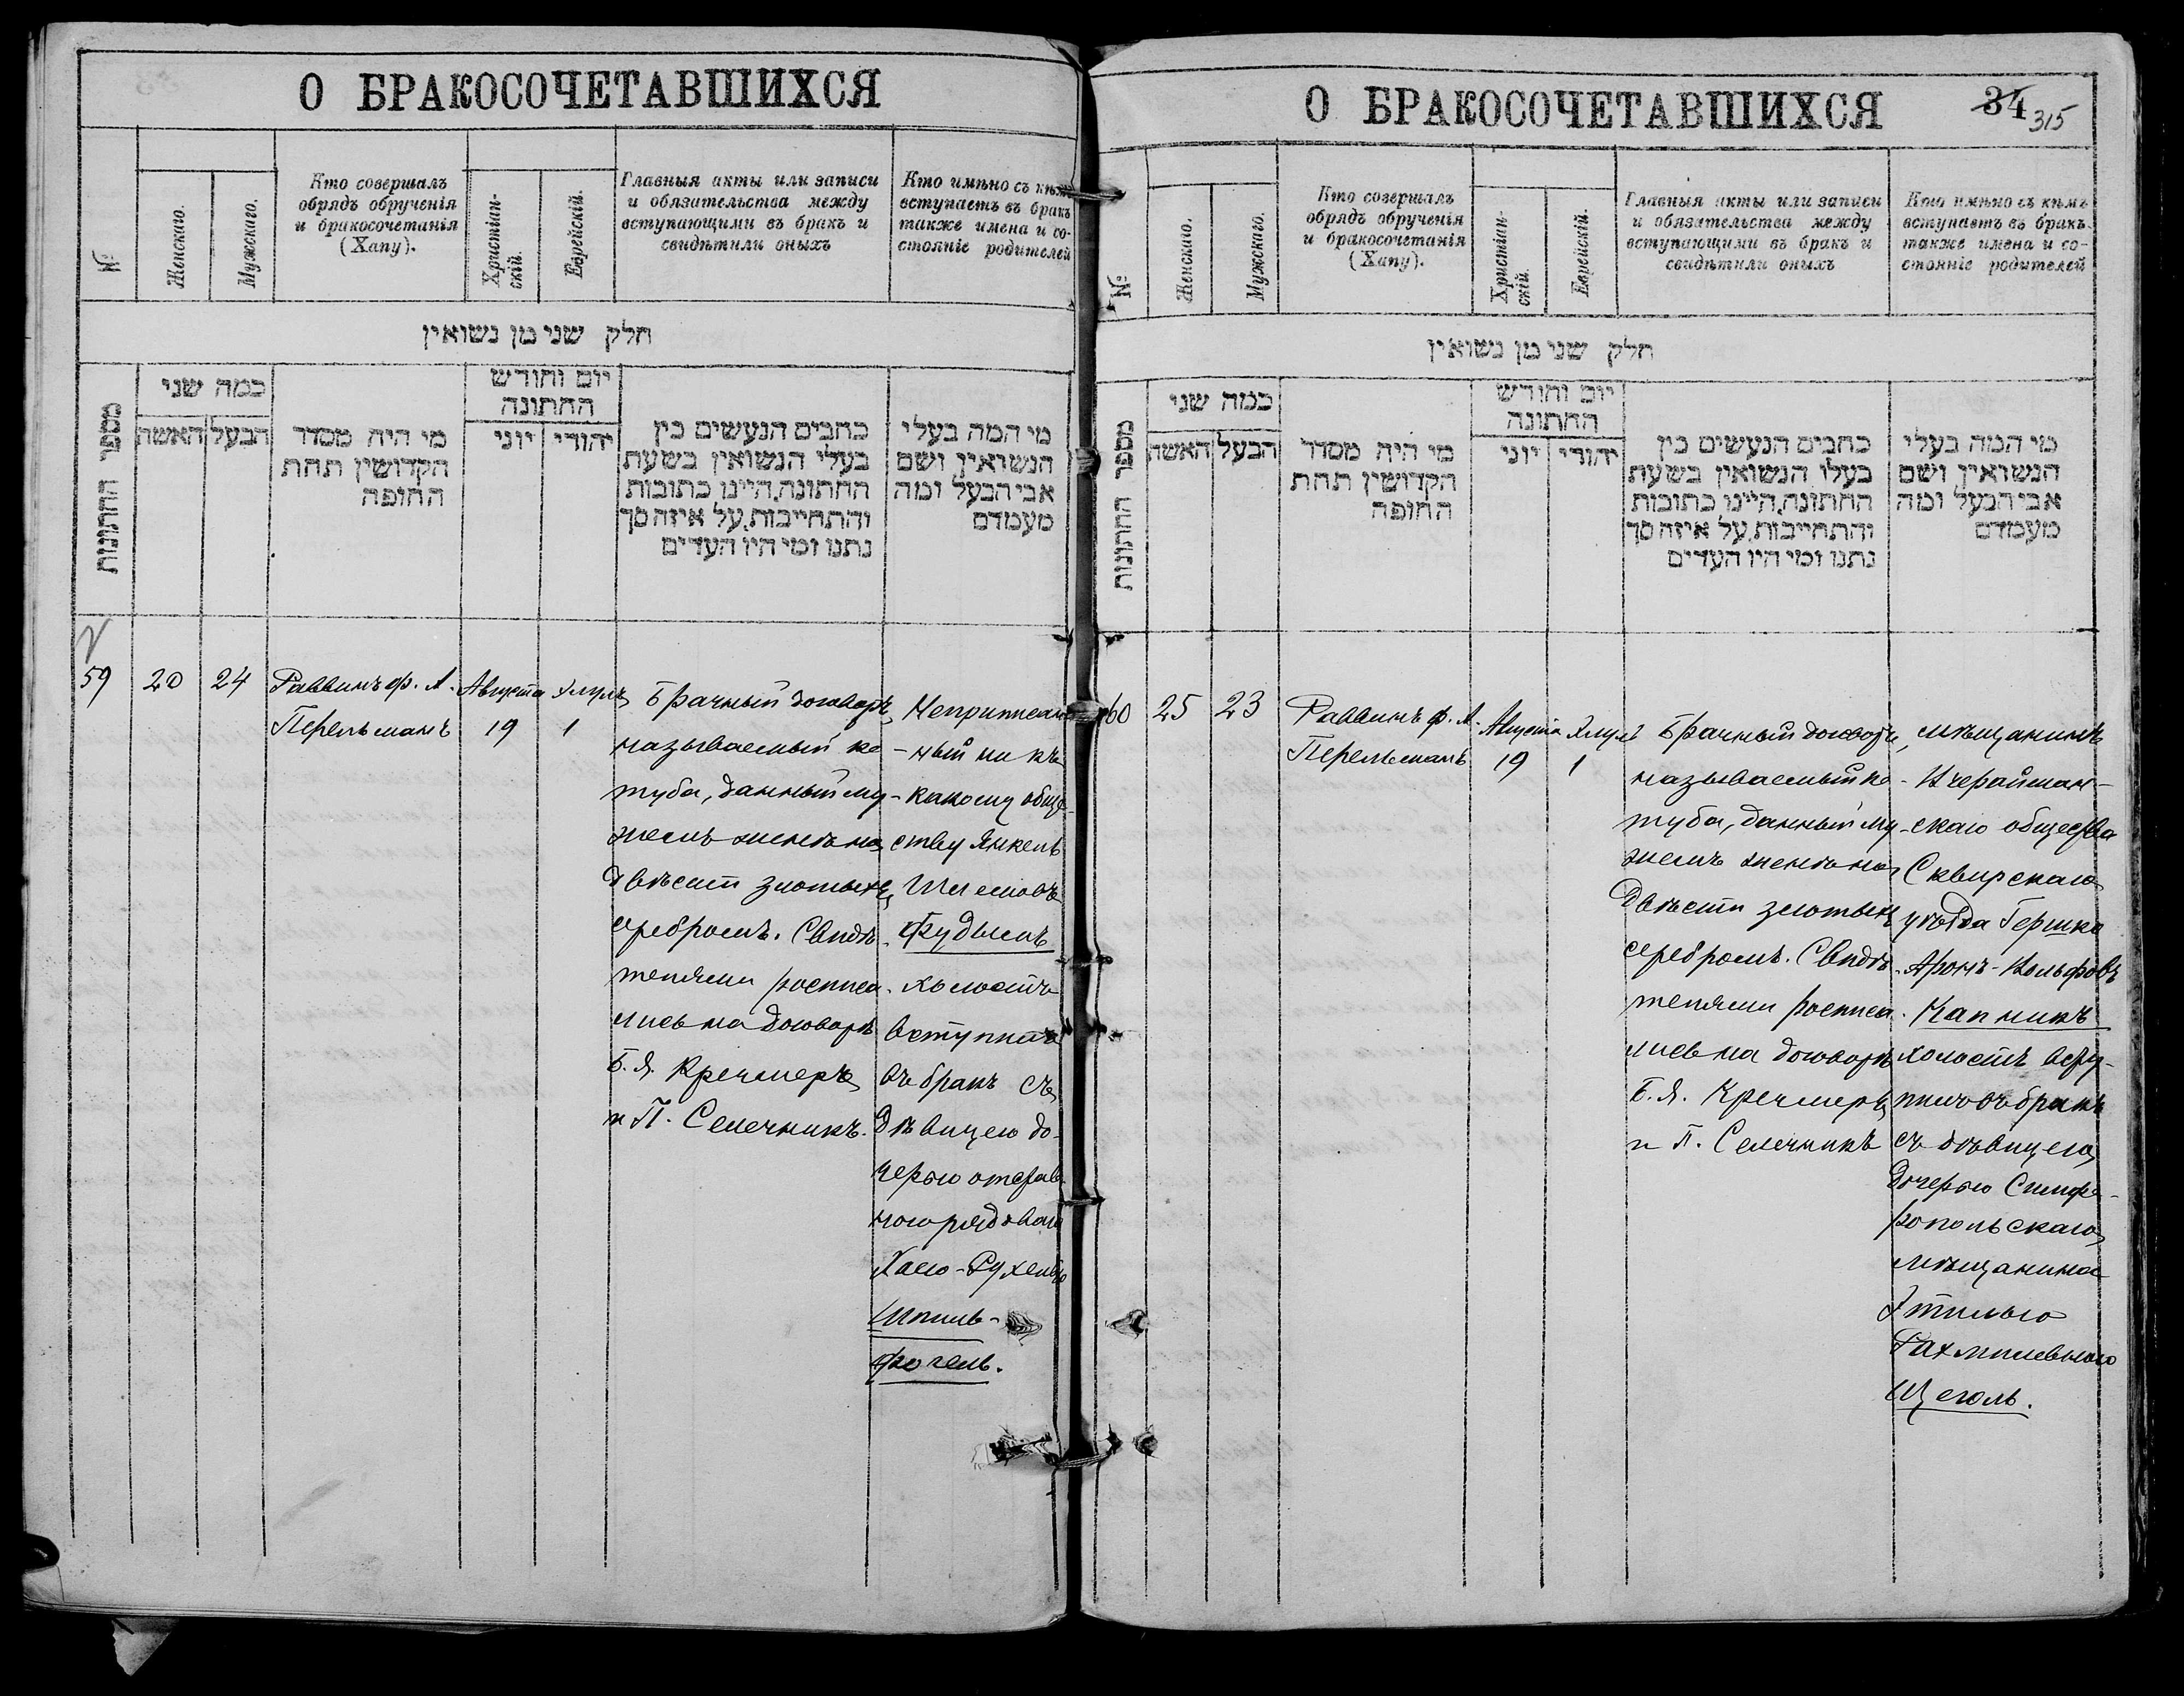 О БРАКОСОЧЕТАВШИХСЯ
№
Женскаго.
Мужскаго.
Кто совершалъ
обрядъ обрученія
и бракосочетанія
(Хапу).
Христіан-
скій.
Еврейскій.
Главныя акты или записи
и обязательства между
вступающими въ бракъ и
свидѣтили оныхъ
Кто имѣно съ кѣмъ
вступаетъ въ бракъ
также имена и со-
стояніе родителей
חלק שני מן נשואין
מספר החתונות
כמה שני
האשה
הבעל
מי היה מסדר
הקדושין תחת
החופה
יום וחודש
החתונה
יוני
יהודי
כתבים הנעשים בין
בעלי הנשואין בשעת
החתונה, היינו כתובות
והתחייבות, על איזה סך
נתנו ומי היו העדים
מי המה בעלי
הנשואין ושם
אבי הבעל ומה
מעמדם
59
20
24
Раввинъ Ф. А.
Перельманъ
Августа
19
Элулъ
1
Брачный договоръ,
называемый ке-
туба, данный му-
жемъ женѣ на
двѣсти злотыхъ
серебромъ. Свидѣ-
телями росписа-
лись на договорѣ
Б. Я. Кречмеръ
и П. Семечникъ.
Неприписан-
ный ни къ
какому обще-
ству Янкель
Шлемовъ
Фудымъ
холостъ
вступилъ
въ бракъ съ
дѣвицею до-
черью отстав-
ного рядового
Хаею-Рухлею
Шпиль-
фогель.
О БРАКОСОЧЕТАВШИХСЯ
34
315
№
Женскаго.
Мужскаго.
Кто совершалъ
обрядъ обрученія
и бракосочетанія
(Хапу).
Христіан-
скій.
Еврейскій.
Главныя акты или записи
и обязательства между
вступающими въ бракъ и
свидѣтили оныхъ
Кто имѣно съ кѣмъ
вступаетъ въ бракъ
также имена и со-
стояніе родителей
חלק שני מן נשואין
מספר החתונות
כמה שני
האשה
הבעל
מי היה מסדר
הקדושין תחת
החופה
יום וחודש
החתונה
יוני
יהודי
כתבים הנעשים בין
בעלי הנשואין בשעת
החתונה, היינו כתובות
והתחייבות, על איזה סך
נתנו ומי היו העדים
מי המה בעלי
הנשואין ושם
אבי הבעל ומה
מעמדם
60
25
23
Раввинъ Ф. А.
Перельманъ
Августа
19
Элулъ
1
Брачный договоръ,
называемый ке-
туба, данный му-
жемъ женѣ на
двѣсти злотыхъ
серебромъ. Свидѣ-
телями росписа-
лись на договорѣ
Б. Я. Кречмеръ
и П. Семечникъ
мѣщанинъ
Ичерайшан-
скаго общества
Сквирскаго
уѣзда Гершко
Аронъ-Вольфовъ
Капникъ
холостъ всту-
пилъ въ бракъ
съ дѣвицею
дочерью Симфе-
ропольскаго
мѣщанина
Этилью
Рахмилевною
Щеголь.